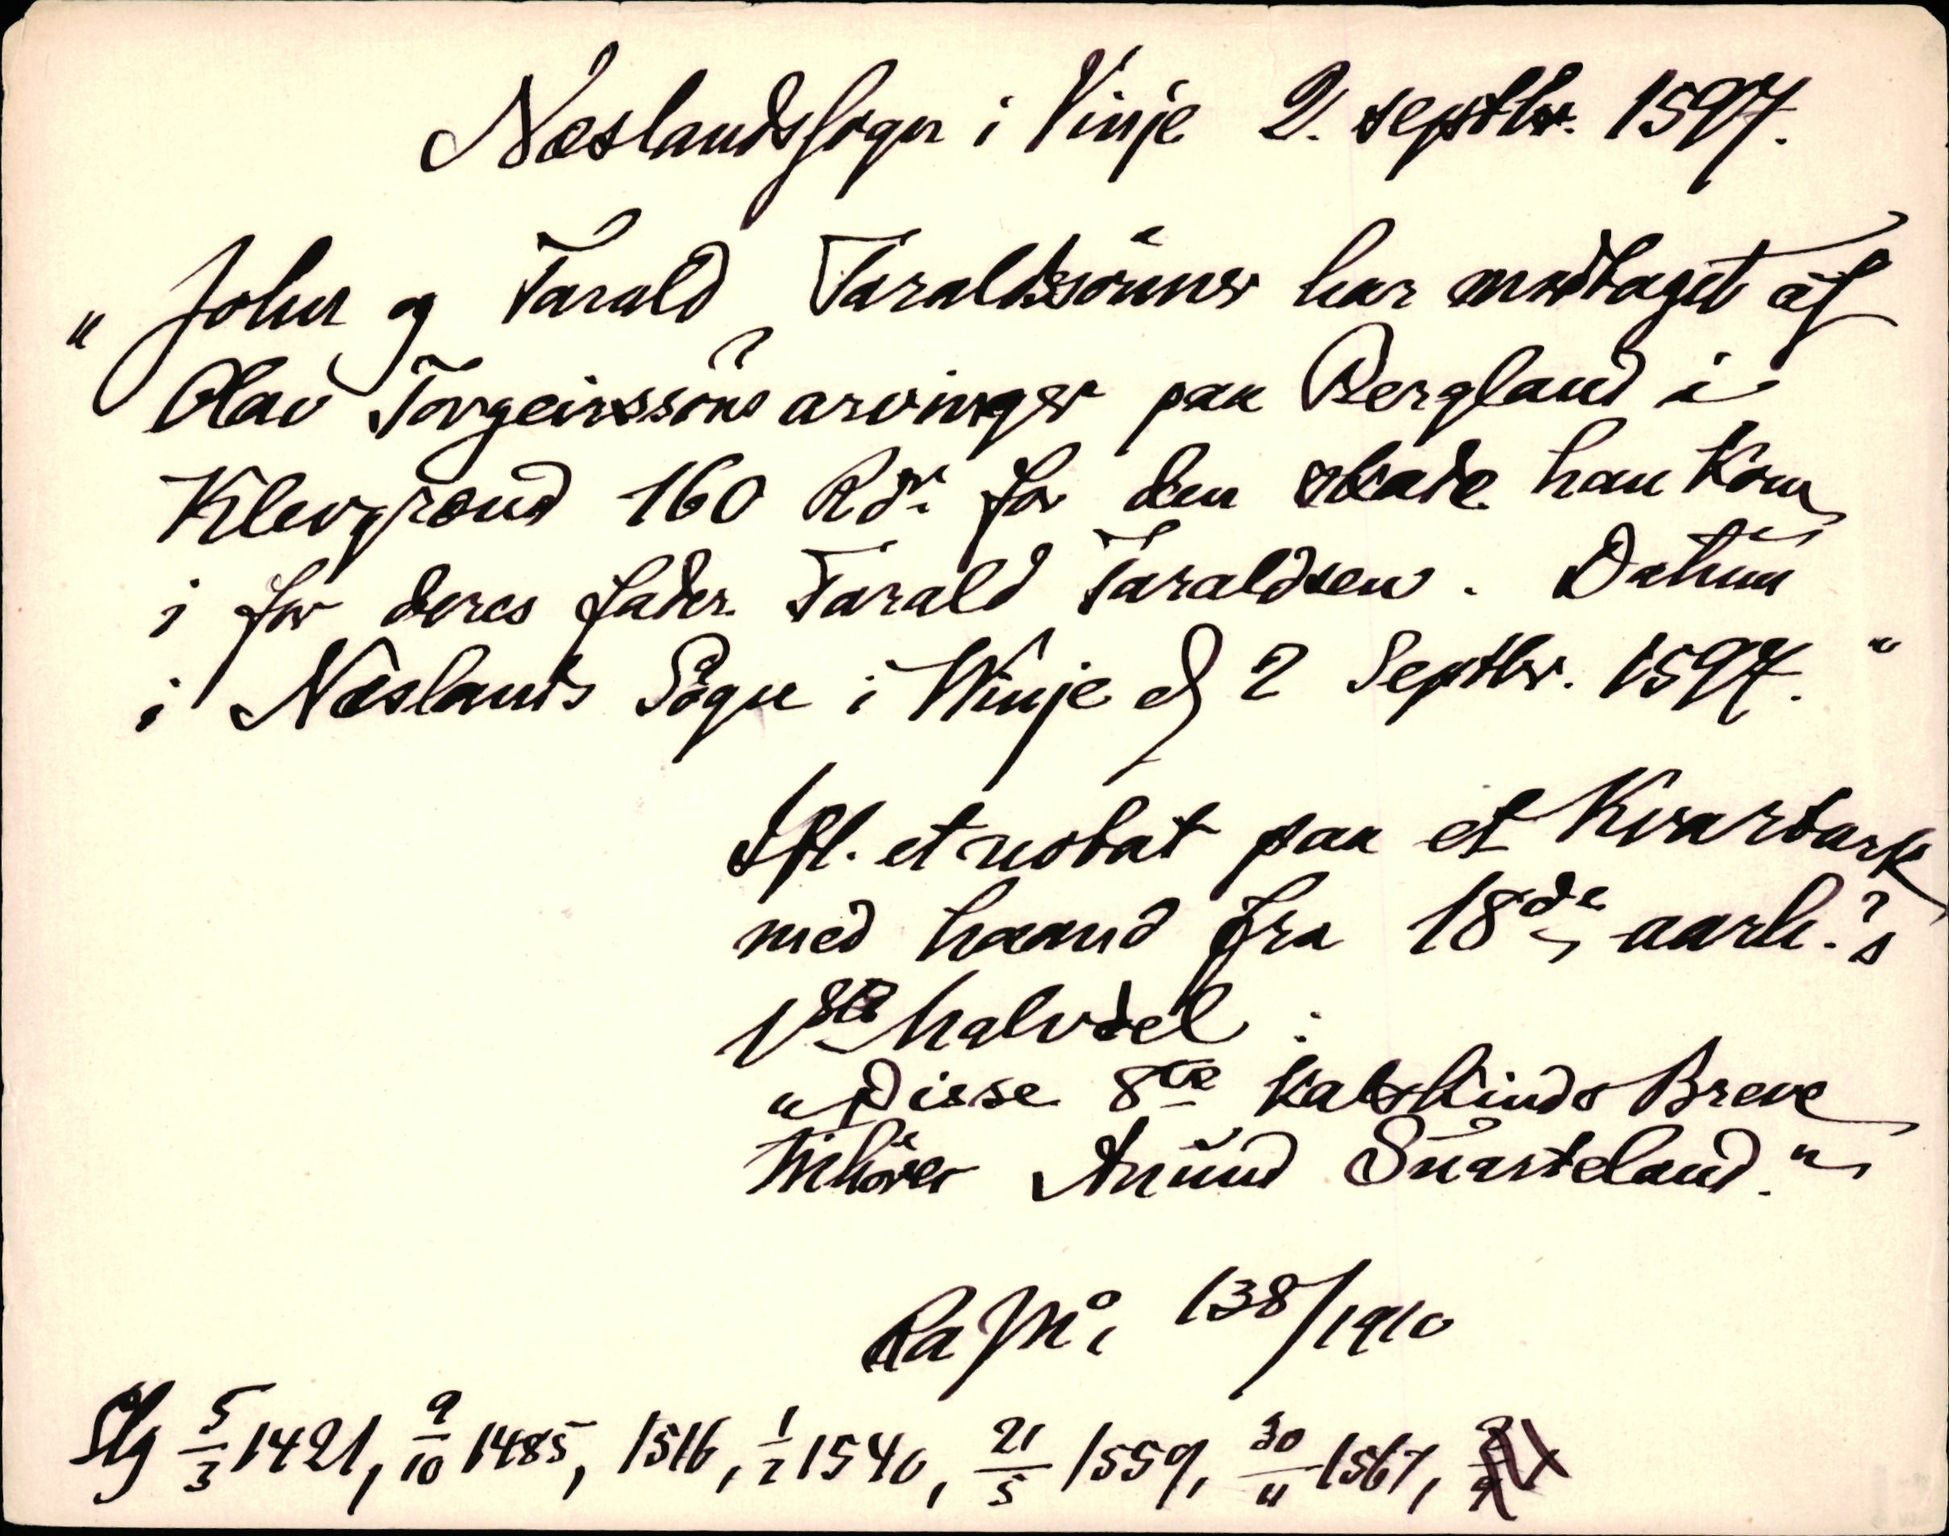 Næslandssogn i Vinje 2. septbr. 1597.
"John og Tarald Taraldssønner har modtaget af
Olav Torgeirssøns arvinger paa Bergland i
Klevgrend 160 Rdr. for den skade han kom
i for deres fader Tarald Taraldsen. Datum
i Næslands Sogn i Winje d 2 Septbr. 1597."
Ifl. et notat paa et Kvartark
med haand fra 18de aarh.?s
1ste halvdel:
"Disse 8te Kalskinds Breve
tilhører Anund Suarteland."
Ra Mi 138/1910
Slg 5/3 1421, 9/10 1485, 1516, 1/2 1540, 21/5 1559, 30/11 1567, 2/9